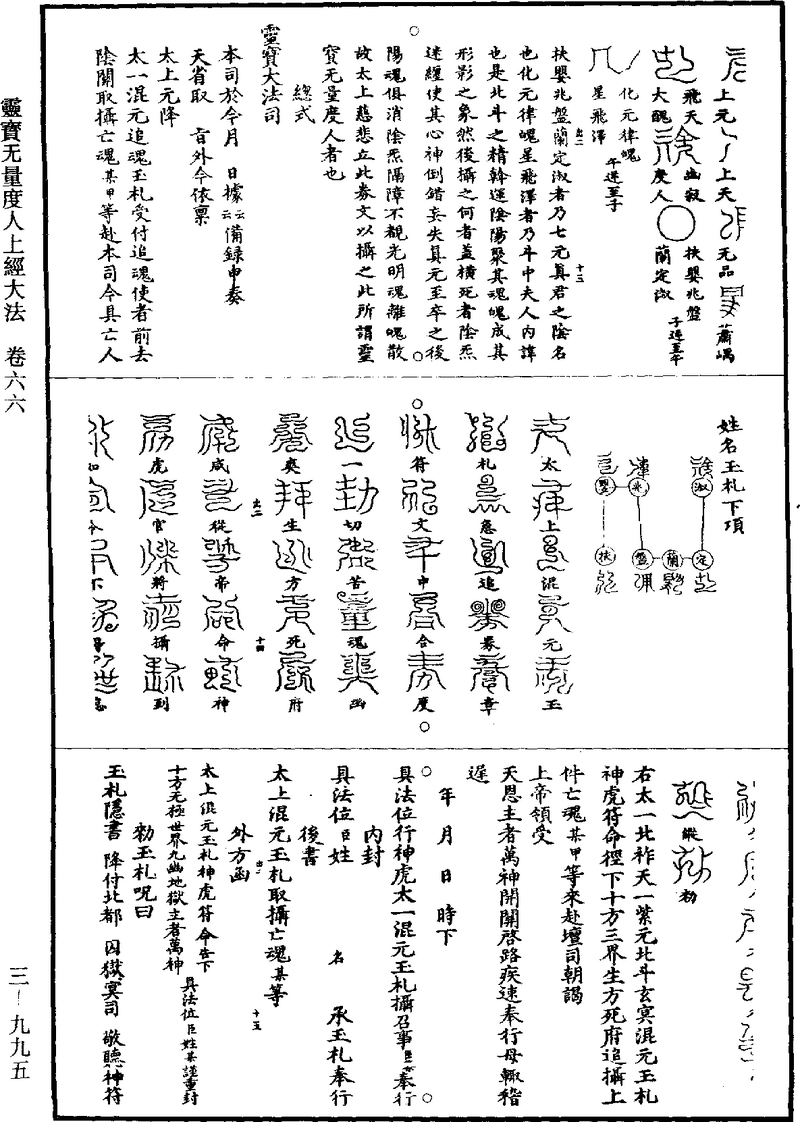 上元 上天 无品 蕭嵎
飛天 幽寂 扶嬰兆盤 子逆至午
大醜 度人 蘭定淑
化元律魄 午逆至子
星飛澤
扶嬰兆盤蘭定淑者乃七元真君之陰名
也化元律魄星飛澤者乃斗中夫人内諱
也是北斗之精斡運陰陽聚其魂魄成其
形影之象然後攝之何者蓋横死者陰炁
迷纏使其心神倒錯妄失真元至卒之後
陽魂俱消陰炁隔障不覩光明魂離魄散
故太上慈悲立此券文以攝之此所謂靈
寶无量度人者也
總式
靈寶大法司
本司於今月 日據云云備録申奏
天省取 旨外今依稟
太上元降
太一混元追魂玉札受付追魂使者前去
陰關取攝亡魂某甲等赴本司今具亡人
姓名玉札下項
淑 定
蘭
兆 盤
嬰 扶
太上混元玉
札急追券章
符文申合度
一切苦魂幽
爽生方死府
咸從帝命神
虎官將攝到
如今下
縱 勑
右太一北祚天一紫元北斗玄冥混元玉札
神虎符命徑下十方三界生方死府追攝上
件亡魂某甲等來赴壇司朝謁
上帝領受
天恩主者萬神開關啓路疾速奉行毋輒稽
遲
年 月 日 時下
具法位行神虎太一混元玉札攝召事臣姓某奉行
内封
具法位臣姓 名 承玉札奉行
後書
太上混元玉札取攝亡魂某等
外方函
太上混元玉札神虎符命告下
十方无極世界九幽地獄主者萬神 具法位臣姓某謹重封
勑玉札呪曰
玉札隱書 降付北都 囚獄冥司 敬聽神符
靈寶无量度人上經大法 卷六六
三—九九五